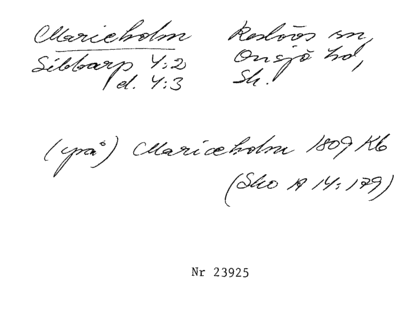 Marieholm Reslövs sn,
Sibbarp 4:2 Onsjö hd,
d. 4:3 Sk.
(på) Marieholm 1809 Kb
(Sko A 14:179)
Nr 23925